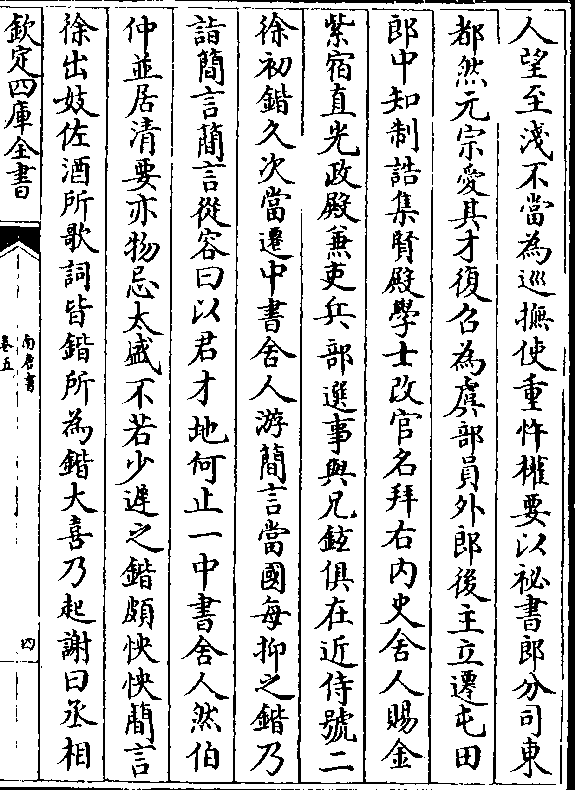 人望至淺不當為巡撫使重忤權要以祕書郎分司東
都然元宗愛其才復召為虞部員外郎後主立遷屯田
郎中知制誥集賢殿學士改官名拜右內史舍人賜金
紫宿直光政殿兼吏兵部選事與兄鉉俱在近侍號二
徐初鍇久次當遷中書舍人游簡言當國每抑之鍇乃
詣簡言簡言從容曰以君才地何止一中書舍人然伯
仲並居清要亦物忌太盛不若少遲之鍇頗怏怏簡言
徐出妓佐酒所歌詞皆鍇所為鍇大喜乃起謝曰丞相
欽定四庫全書
南唐書
卷五
四